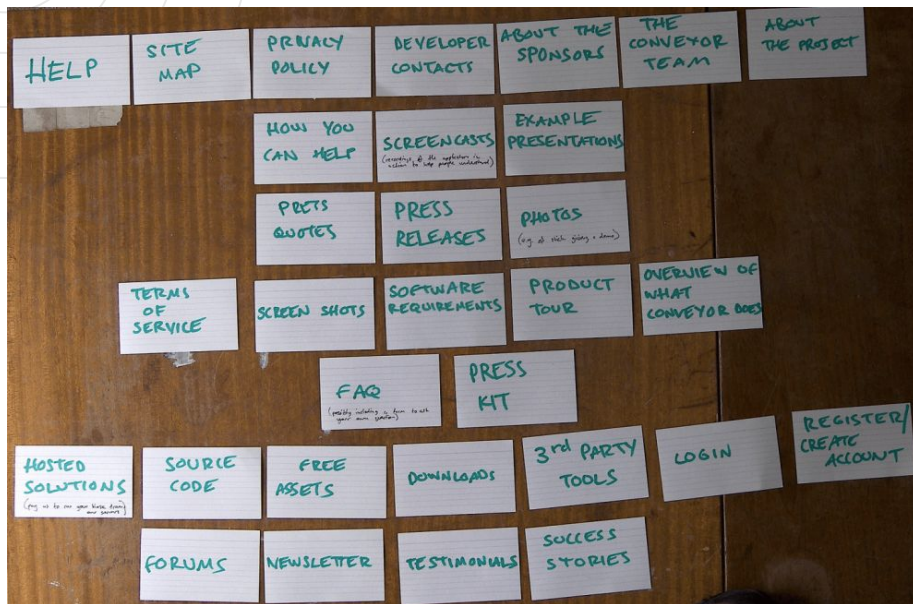 HELP
SITE
MAP
PRIVACY
POLICY
DEVELOPER
CONTACTS
ABOUT THE
SPONSORS
THE
CONVEYOR
TEAM
ABOUT
THE PROJECT
HOW YOU
CAN HELP
SCREENCASTS
(recordings of the application in
action to help people understand)
EXAMPLE
PRESENTATIONS
PRETS
QUOTES
PRESS
RELEASES
PHOTOS
(e.g. of rich giving a demo)
TERMS
OF
SERVICE
SCREEN SHOTS
SOFTWARE
REQUIREMENTS
PRODUCT
TOUR
OVERVIEW OF
WHAT
CONVEYOR DOES
FAQ
(possibly including a form to ask
your own question)
PRESS
KIT
HOSTED
SOLUTIONS
(pay us to run your from
our servers
SOURCE
CODE
FREE
ASSETS
DOWNLOADS
3rd PARTY
TOOLS
LOGIN
REGISTER/
CREATE
ACCOUNT
FORUMS
NEWSLETTER
TESTIMONIALS
SUCCESS
STORIES